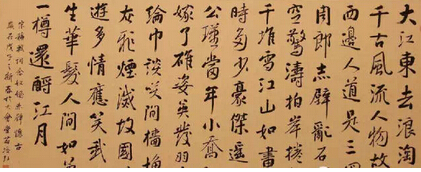 大江東去浪淘
千古風流人物故
西邊人道是三
周郎赤壁亂石
空驚濤拍岸
千堆雪江山如畫
時多少豪傑遙
公瑾當年小喬
嫁了雄姿英發羽
綸巾談笑間檣
灰飛煙滅故國
遊多情應笑我
生華髮人間如夢
一樽還酹江月
宋蘇軾詞念奴嬌赤壁懷古